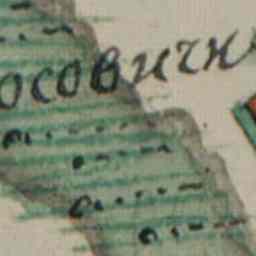 осовичи